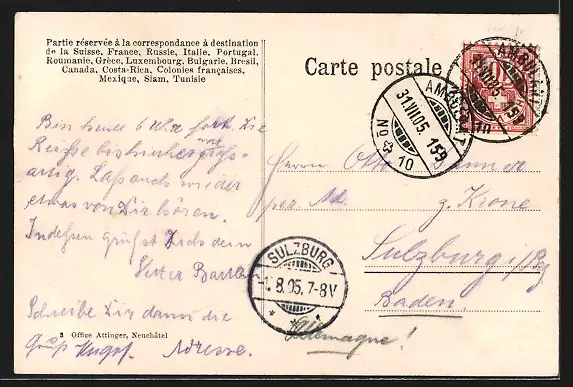 Partie réservée à la correspondance à destination
de la Suisse, France, Russie, Italie, Portugal,
Roumanie, Grèce, Luxembourg, Bulgarie, Bresil,
Canada, Costa-Rica, Colonies françaises,
Mexique, Siam, Tunisie
Carte postale
AMBULANT
10
AMBULANT
31.VII.05.159
No 10
Bin heute 6 Uhr Die
Reise bisher
artig. Lass auch wieder
etwas von Dir hören.
Indessen grüsst Dich dein
Vetter
Schreibe Dir dann die
Adresse.
Herrn Otto
per Ad. z. Krone
Sulzburg i/Bg
Baden.
Allemagne!
SULZBURG
-1.8.05.7-8V
3 Office Attinger, Neuchâtel